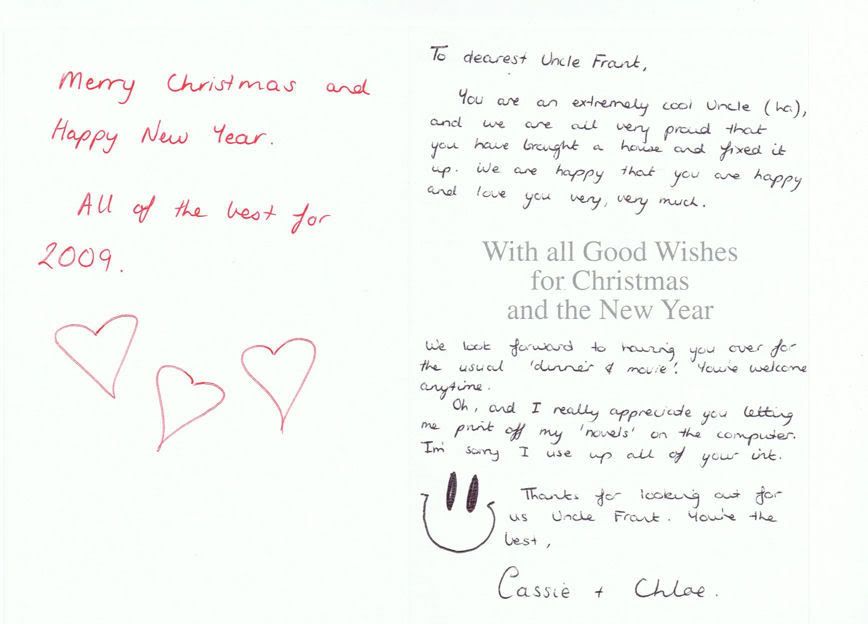 Merry Christmas and
Happy New Year.
All of the best for
2009.
To dearest Uncle Frank,
You are an extremely cool Uncle (ha),
and we are all very proud that
you have brought a house and fixed it
up. We are happy that you are happy
and love you very, very much.
With all Good Wishes
for Christmas
and the New Year
We look forward to having you over for
the usual 'dinner & movie'! You're welcome
anytime.
Oh, and I really appreciate you letting
me print off my 'novels' on the computer.
I'm sorry I use up all of your ink.
Thanks for looking out for
us Uncle Frank. You're the
best,
Cassie + Chloe.